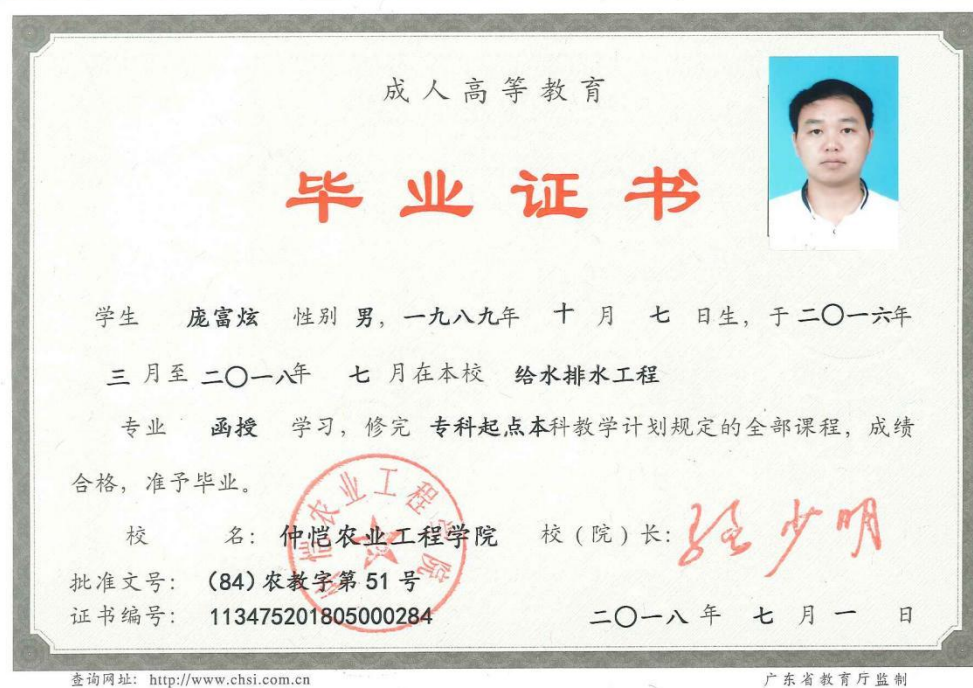 成人高等教育
毕业证书
学生 庞富炫 性别 男，一九八九年 十 月 七 日生，于二〇一六年
三 月至 二〇一八年 七 月在本校 给水排水工程
专业 函授 学习，修完 专科起点本科教学计划规定的全部课程，成绩
合格，准予毕业。
仲恺农业工程学院
校 名：仲恺农业工程学院 校（院）长：
批准文号：(84)农教字第 51 号
证书编号：113475201805000284 二〇一八 年 七 月 一 日
查询网址：http://www.chsi.com.cn 广东省教育厅监制